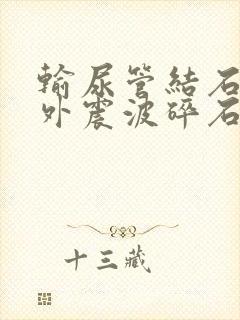 輸尿管結石
外震波碎石
十三藏